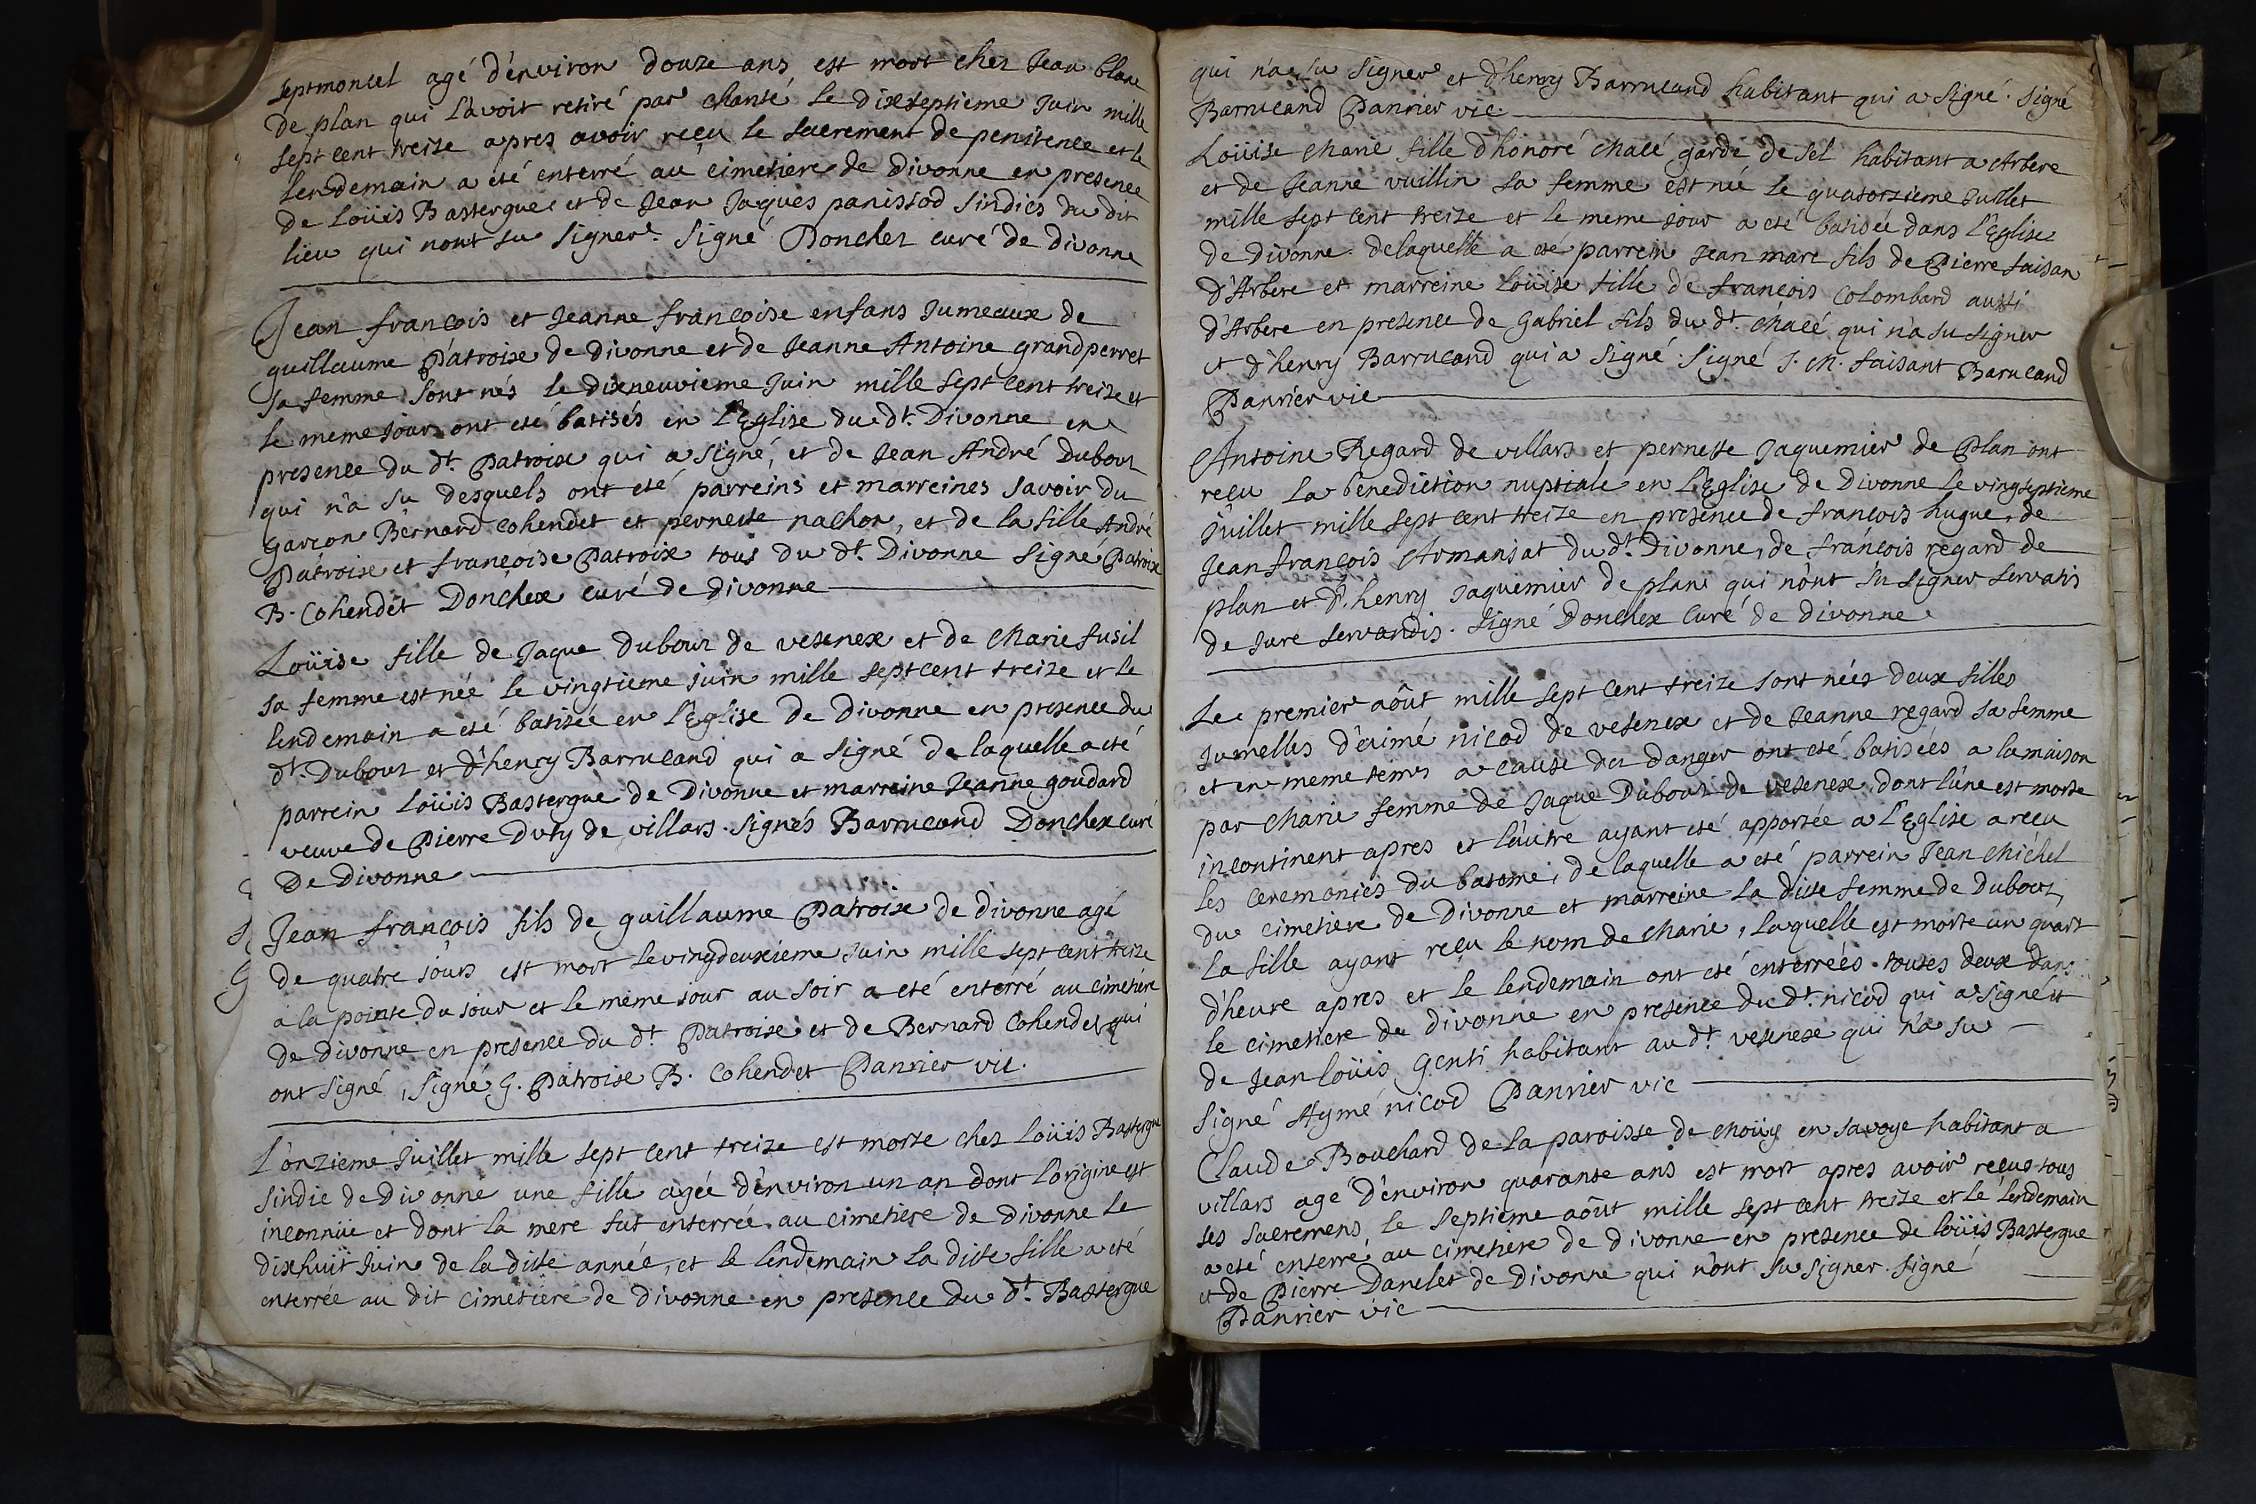 septmoncel agé d'environ douze ans est mort chez Jean blanc
de plan qui l'avoit retiré par charité le dixseptieme Juin mille
sept cent treize apres avoir reçu le sacrement de penitence et le
lendemain a eté enterré au cimetiere de divonne en presence
de Loüis Bastergue et de Jean Jaques panissod sindics du dit
lieu qui nont su signer. Signé Donchex curé de divonne
Jean francois et Jeanne françoise enfans Jumeaux de
guillaume Patroix de divonne et de Jeanne Antoine grandperret
sa femme sont nés le dixneuvieme Juin mille sept cent treize et
le meme jour ont eté batisés en l'Eglise du dt. Divonne en
presence du dt. Patroix qui a signé, et de Jean André Dubout
qui n'a su desquels ont eté parreins et marreines savoir du
garcon Bernard Cohendet et pernette nachon, et de la fille André
Patroix et françoise Patroix tous du dt. Divonne Signe Patroix
B. Cohendet Donchex curé de divonne
Loüise fille de Jaque Dubout de vesenex et de Marie fusil
sa femme est née le vingtieme juin mille sept cent treize et le
lendemain a eté batisée en l'Eglise de Divonne en presence du
dt. Dubout et d'henry Barrucand qui a signé de laquelle a eté
parrein Loüis Bastergue de Divonne et marreine Jeanne goudard
veuve de Pierre Duty de villars. Signés Barrucand Donchex curé
de Divonne
Jean francois fils de guillaume Patroix de divonne agé
de quatre jours est mort le vingdeuxieme Juin mille sept cent treize
a la pointe du jour et le meme jour au soir a eté enterré au cimetiere
de divonne en presence du dt. Patroix et de Bernard Cohendet qui
ont signé, Signé G. Patroix B. Cohendet Panrier vic.
L'onzieme Juillet mille sept cent treize est morte chez Loüis Bastergue
sindic de divonne une fille agée d'environ un an dont l'origine est
inconnüe et dont la mere fut enterrée au cimetiere de divonne le
dixhuit Juin de la ditte année, et le lendemain la ditte fille a eté
enterrée au dit cimetiere de divonne en presence du dt. Bastergue
qui n'a su signer et d'henry Barrucand habitant qui a signé. Signé
Barrucand Panrier vic.
Loüise Marie fille d'honoré Macé garde de sel habitant a Arbere
et de Jeanne vuillin sa femme est née le quatorzieme Juillet
mille sept cent treize et le meme jour a eté batisée dans l'Eglise
de Divonne. de laquelle a eté parrein Jean marc fils de Pierre faisan
d'Arbere et marreine Loüise fille de françois Colombard aussi
d'Arbere en presence de Gabriel fils du dt. Macé qui n'a su signer
et d'henry Barrucand qui a signé. Signé J. M. faisant Barucand
Panrier vic
Antoine Regard de villars et pernette Jaquemier de Plan ont
reçu la benediction nuptiale en l'Eglise de Divonne le vingseptieme
Juillet mille sept cent treize en presence de françois hugue, de
Jean françois Armanjat du dt. Divonne, de françois regard de
plan et d'henry Jaquemier de plan qui n'ont su signer servatis
de jure servandis. Signé Donchex Curé de divonne
Le premier aôut mille sept cent treize sont nées deux filles
Jumelles d'aimé nicod de vesenex et de Jeanne regard sa femme
et en meme tems a cause du danger ont eté batisées a la maison
par Marie femme de Jaque Dubout de vesenex, dont l'une est morte
incontinent apres et l'autre ayant eté apportée a l'Eglise a reçu
les ceremonies du bateme, de laquelle a eté parrein Jean Michel
du cimetiere de Divonne et marreine la ditte femme de Dubout,
la fille ayant reçu le nom de Marie, laquelle est morte un quart
d'heure apres et le lendemain ont eté enterrées toutes deux dans
le cimetiere de divonne en presence du dt. nicod qui a signé et
de Jean Loüis Genti habitant au dt. vesenex qui n'a su
signé Aymé nicod Panrier vic
Claude Bouchard de la paroisse de choüy en savoye habitant a
villars agé d'environ quarante ans est mort apres avoir reçus tous
ses sacremens, le septieme aôut mille sept cent treize et le lendemain
a eté enterré au cimetiere de divonne en presence de Loüis Bastergue
et de Pierre Danclet de Divonne qui n'ont su signer. Signé
Panrier vic